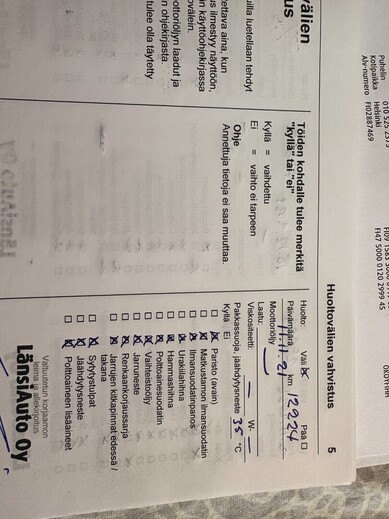 010 525 2375
Helsinki
FI02887469
Puhelin
Kotipaikka
Alv-numero
FI47 5000 0120 2999 45
välien
us
uilla luetellaan tehdyt
ettava aina, kun
us ilmestyy näyttöön,
n käyttöohjekirjassa
ovälein.
oottoriöljyn laadut ja
n ohjekirjasta.
tulee olla täytetty
Töiden kohdalle tulee merkitä
"kyllä" tai "ei"
Kyllä = vaihdettu
Ei = vaihto ei tarpeen
Ohje
Annettuja tietoja ei saa muuttaa.
Huoltovälien vahvistus 5
Huolto: Väli Pää
Päivämäärä 11.11.21 km 12224
Moottoriöljy
Laatu:
Viskositeetti: W-
Pakkassuoja, jäähdytysneste 35 °C
Kyllä Ei
Paristo (avain)
Matkustamon ilmansuodatin
Ilmansuodatinpanos
Urakiilahihna
Hammashihna
Polttoainesuodatin
Vaihteistoöljy
Jarruneste
Renkaankorjaussarja
Jarrujen kitkapinnat edessä /
takana
Sytytystulpat
Jäähdytysneste
Polttoaineen lisäaineet
Valtuutetun korjaamon
leima ja allekirjoitus
LänsiAuto Oy